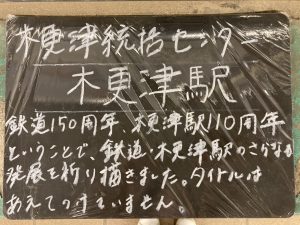 木更津統括センター
木更津駅
鉄道150周年、木更津駅110周年
ということで、鉄道・木更津駅のさらなる
発展を祈り描きました。タイトルは
あえてつけていません。